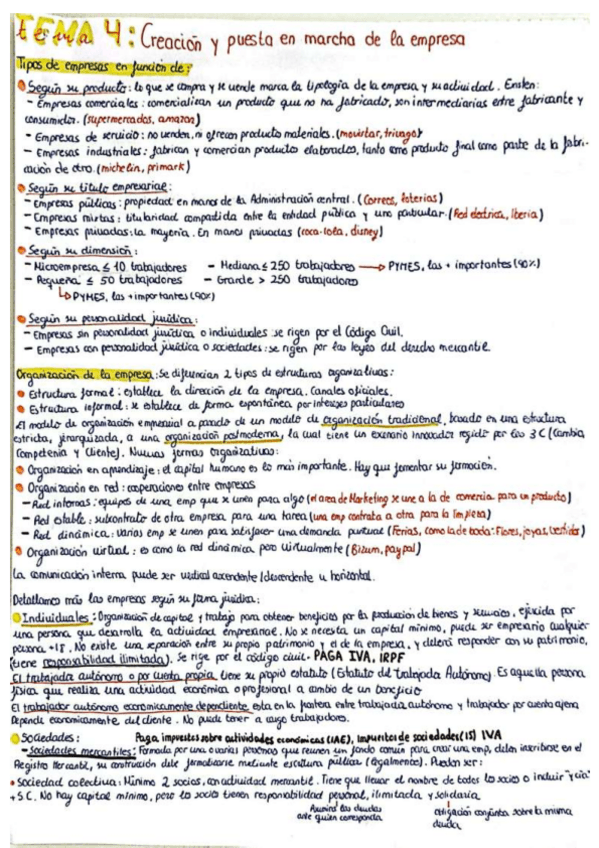 TEMA 4: Creación y puesta en marcha de la empresa
Tipos de empresas en función de:
Según su producto: lo que se compra y se vende marca la tipología de la empresa y su actividad. Existen:
- Empresas comerciales: comercializan un producto que no ha fabricado, son intermediarias entre fabricante y
consumidor. (supermercados, amazon)
- Empresas de servicio: no venden, ni ofrecen productos materiales. (movistar, trivago)
- Empresas industriales: fabrican y comercian productos elaborados, tanto como producto final como parte de la fabri-
cación de otro. (michelin, primark)
Según su título empresarial:
- Empresas públicas: propiedad en manos de la Administración central. (Correos, loterias)
- Empresas mixtas: titularidad compartida entre la entidad pública y uno particular. (Red electrica, Iberia)
- Empresas privadas: la mayería. En manos privadas (coca-cola, disney)
Según su dimensión:
- Microempresa ≤ 10 trabajadores - Mediana ≤ 250 trabajadores → PYMES, las + importantes (90%)
- Pequeña ≤ 50 trabajadores - Grande > 250 trabajadores
↳ PYMES, las + importantes (90%)
Según su personalidad jurídica:
- Empresas sin personalidad jurídica o individuales se rigen por el Código Civil.
- Empresas con personalidad jurídica o sociedades: se rigen por las leyes del derecho mercantil.
Organización de la empresa: Se diferencian 2 tipos de estructuras organizativas:
Estructura formal: establece la dirección de la empresa. Canales oficiales.
Estructura informal: se establece de forma espontánea por intereses particulares
El modelo de organización empresarial a pasado de un modelo de organización tradicional, basado en una estructura
estricta, jerarquizada, a una organización postmoderna, la cual tiene un escenario innovador regido por las 3 C (Cambio,
Competencia y Cliente). Nuevas formas organizativas:
Organización en aprendizaje: el capital humano es lo más importante. Hay que fomentar su formación.
Organización en red: cooperaciones entre empresas
- Red internas: equipos de una emp que se unen para algo (el area de Marketing se une a la de comercia. para un producto)
- Red estable: subcontrato de otra empresa para una tarea (una emp contrata a otra para la limpieza)
- Red dinámica: varias emp se unen para satisfacer una demanda puntual (Ferias, como la de boda: Flores, joyas, vestidos)
Organización virtual: es como la red dinámica pero virtualmente (Bizum, paypal)
La comunicación interna puede ser vertical ascendente/descendente u horizontal.
Detallamos más las empresas según su forma jurídica:
Individuales: Organización de capital y trabajo para obtener beneficios por la producción de bienes y servicios, ejercida por
una persona que desarrolla la actividad empresarial. No se necesita un capital mínimo, puede ser empresario cualquier
persona +18. No existe una separación entre su propio patrimonio y el de la empresa, y deberá responder con su patrimonio,
(tiene responsabilidad ilimitada). Se rige por el código civil. PAGA IVA, IRPF
El trabajador autónomo o por cuenta propia, tiene su propio estatuto (Estatuto del trabajador Autónomo). Es aquella persona
física que realiza una actividad económica o profesional a cambio de un beneficio
El trabajador autónomo económicamente dependiente esta en la frontera entre trabajador autónomo y trabajador por cuenta ajena
Depende economicamente del cliente. No puede tener a cargo trabajadores.
Sociedades: Paga, impuestos sobre actividades económicas (IAE), Impuestos de sociedades (IS) IVA
- Sociedades mercantiles: Formada por una o varias personas que reunen un fondo común para crear una emp, deben inscribirse en el
Registro Mercantil, su constitución debe formalizarse mediante escritura pública (legalmente). Pueden ser:
Sociedad colectiva: Mínimo 2 socios, con actividad mercantil. Tiene que llevar el nombre de todos los socios o incluir "y cia"
+ S.C. No hay capital mínimo, pero los socios tienen responsabilidad personal, ilimitada y solidaria
Asumirá las deudas
ante quien corresponda
obligación conjunta sobre la misma
deuda